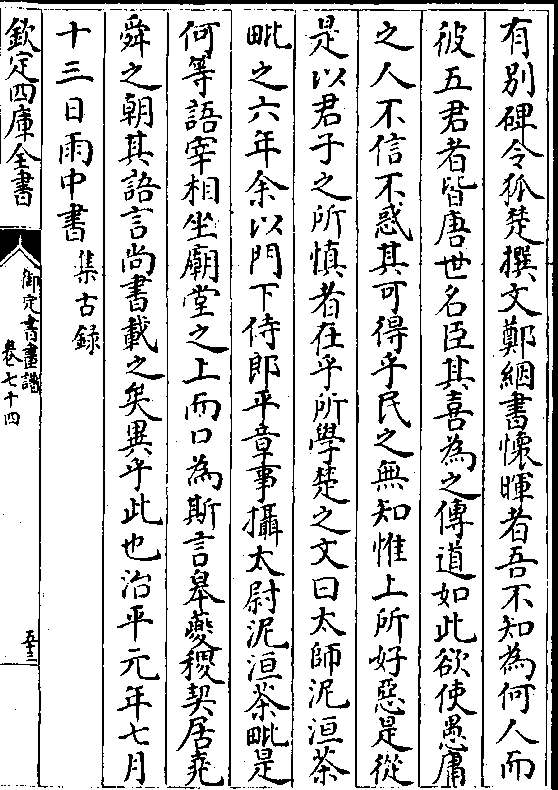 有别碑令狐楚撰文鄭絪書懷暉者吾不知為何人而
彼五君者皆唐世名臣其喜為之傳道如此欲使愚庸
之人不信不惑其可得乎民之無知惟上所好惡是從
是以君子之所慎者在乎所學楚之文曰太師泥洹荼
毗之六年余以門下侍郎平章事攝太尉泥洹荼毗是
何等語宰相坐廟堂之上而口為斯言皋夔稷契居堯
舜之朝其語言尚書載之矣異乎此也治平元年七月
十三日雨中書 集古録
欽定四庫全書
御定書畫譜
卷七十四
五十三